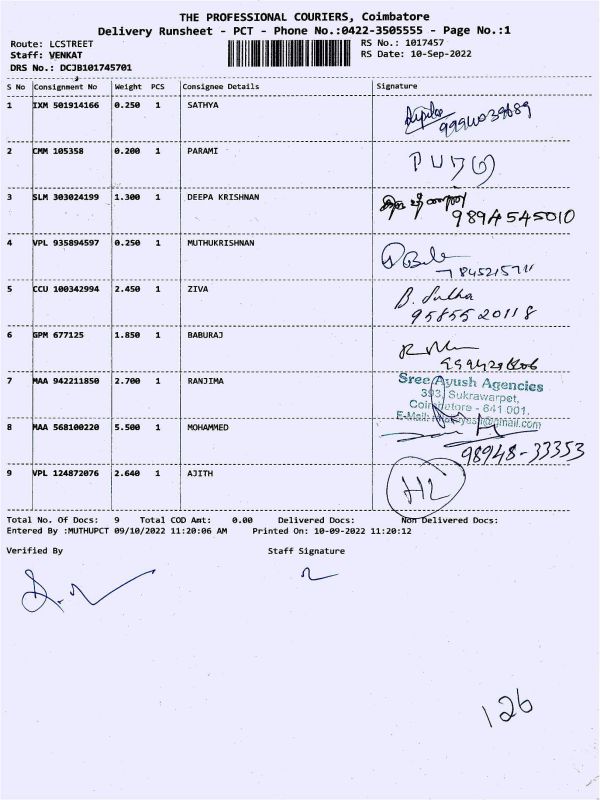 THE PROFESSIONAL COURIERS, Coimbatore
Delivery Runsheet - PCT - Phone No.:0422-3505555 - Page No.:1
Route: LCSTREET RS No.: 1017457
Staff: VENKAT RS Date: 10-Sep-2022
DRS No.: DCJB101745701
S No Consignment No Weight PCS Consignee Details Signature
1 IXM 501914166 0.250 1 SATHYA
2 CMM 105358 0.200 1 PARAMI
3 SLM 303024199 1.300 1 DEEPA KRISHNAN
9894545010
4 VPL 935894597 0.250 1 MUTHUKRISHNAN
7845215711
5 CCU 100342994 2.450 1 ZIVA B. Sutha
9585520118
6 GPM 677125 1.850 1 BABURAJ
7 MAA 942211850 2.700 1 RANJIMA Sree Ayush Agencies
393, Sukrawarpet,
Coimbatore - 641 001.
E-Mail: @gmail.com
8 MAA 568100220 5.500 1 MOHAMMED
98948-33353
9 VPL 124872076 2.640 1 AJITH
Total No. Of Docs: 9 Total COD Amt: 0.00 Delivered Docs: Non Delivered Docs:
Entered By :MUTHUPCT 09/10/2022 11:20:06 AM Printed On: 10-09-2022 11:20:12
Verified By Staff Signature
126